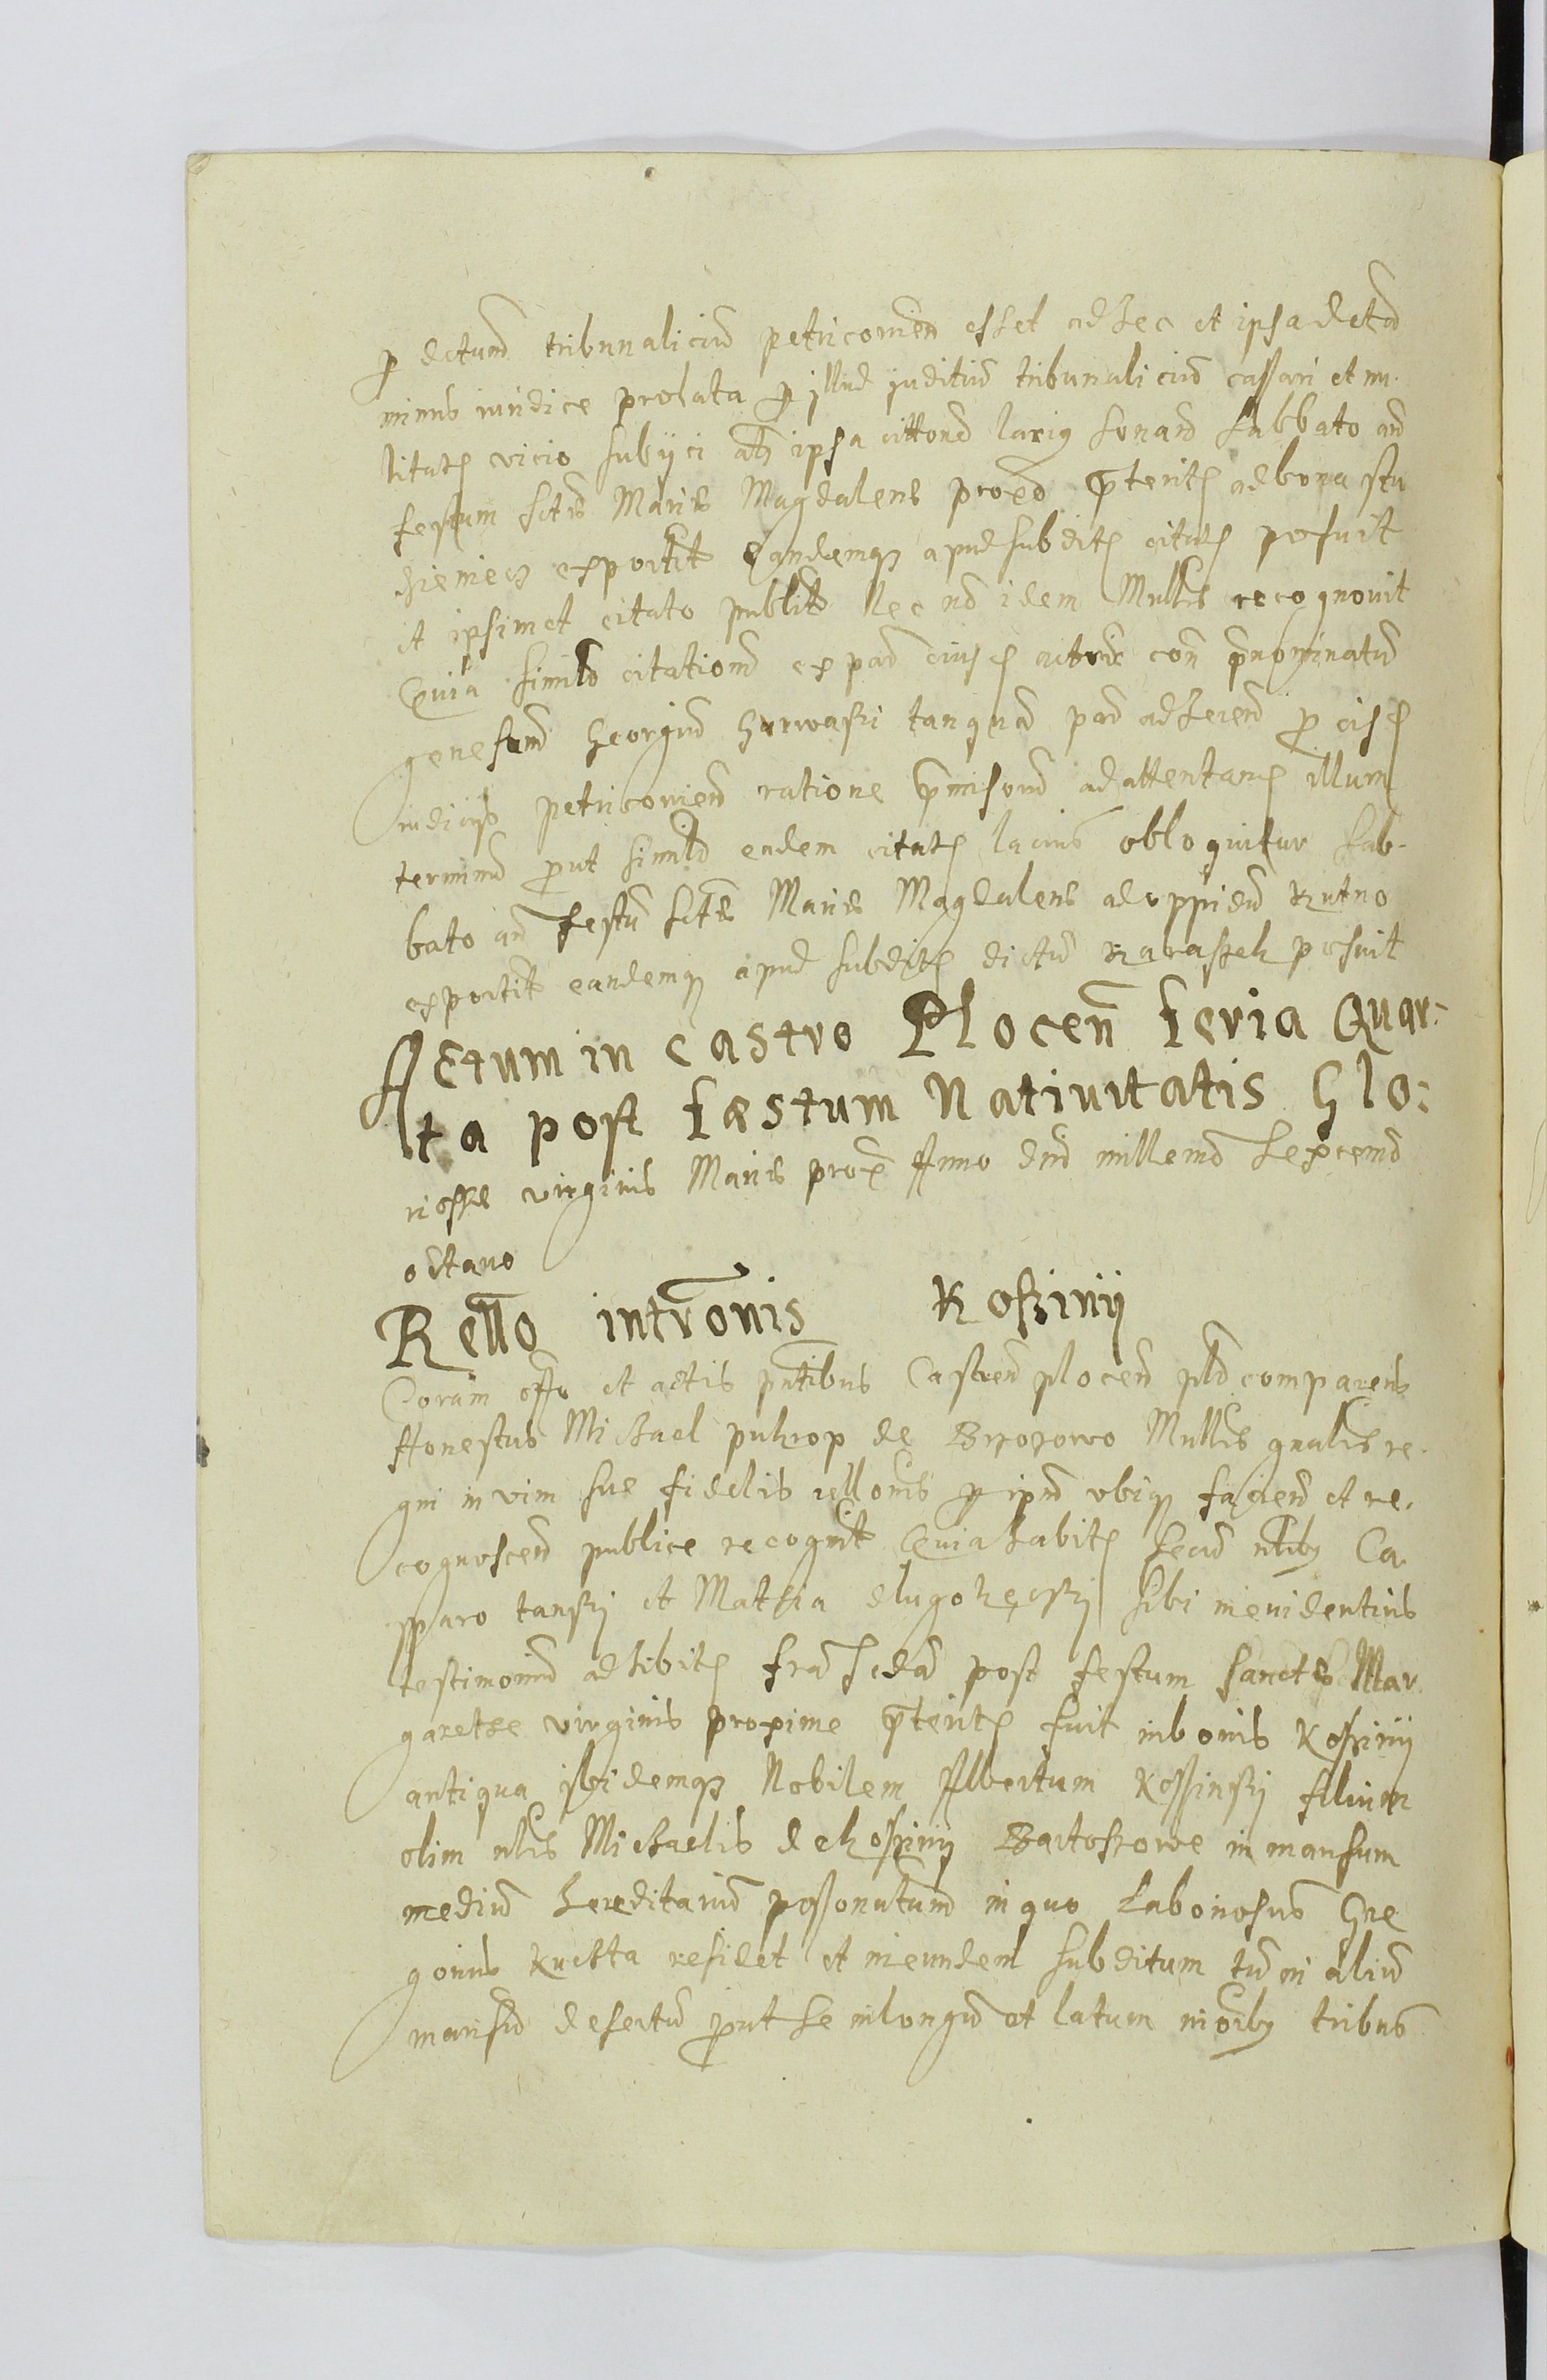 p dctum tribunaliciu petricovien esset adhec et ipsa dcta
minus iuridice prolata p illud juditiu tribunaliciu cassari et nu-
litatis vicio subijci atq ipsa cittone latiq sonan Sabbato an
festum sctae Mariae Magdalenae proxo pterito ad bona stu
dzieniecz exportit eandemq apud subditos citatos posuit
et ipsimet citato publit Nec no idem Mnllis recognovit
Quia simile citatione ex pa eiusd actoris con pnominatu
generum Georgiu Gurwaski tanqua pa adherend p eisd
iudicijs petricovien ratione pmisoru ad attentand illum
terminu put simile eadem citatos latius obloquitur Sab-
bato an festu sctae Mariae Magdalenae ad oppidu Kutno
exportit eandemq apud subditos dictu Karaszek posuit
Actum in castro Plocen feria Quar-
ta post faestum Nativitatis Glo:
riosae virginis Mariae prox Anno dni millemo Sexcemo
octavo
Rello intronis Koszinij
Coram offo et actis pntibus Castren plocen plr comparens
Honestus Michael pukrop de Brzozowo Mnllis gnalis re-
gni in vim suae fidelis rellonis p ipm ubiq faciend et re-
cognoscend publice recognit Quia habitis secu nlibq Ca
sparo tanski et Mathia dlugolecski sibi in evidentius
testimoniu adhibitis fra scda post festum sanctae Mar
garethae virginis proxime pterito fuit in bonis Koszinij
antiqua ibidemq Nobilem Albertum Koszinski filium
olim nlis Michaelis de Koszinij Bartoszowe in mansum
mediu hereditariu possonatum in quo Laboriosus Gre
gorius Kuchta residet et in eundem subditum tu in aliu
mansu desertu put se in longu et latum in oibq tribus